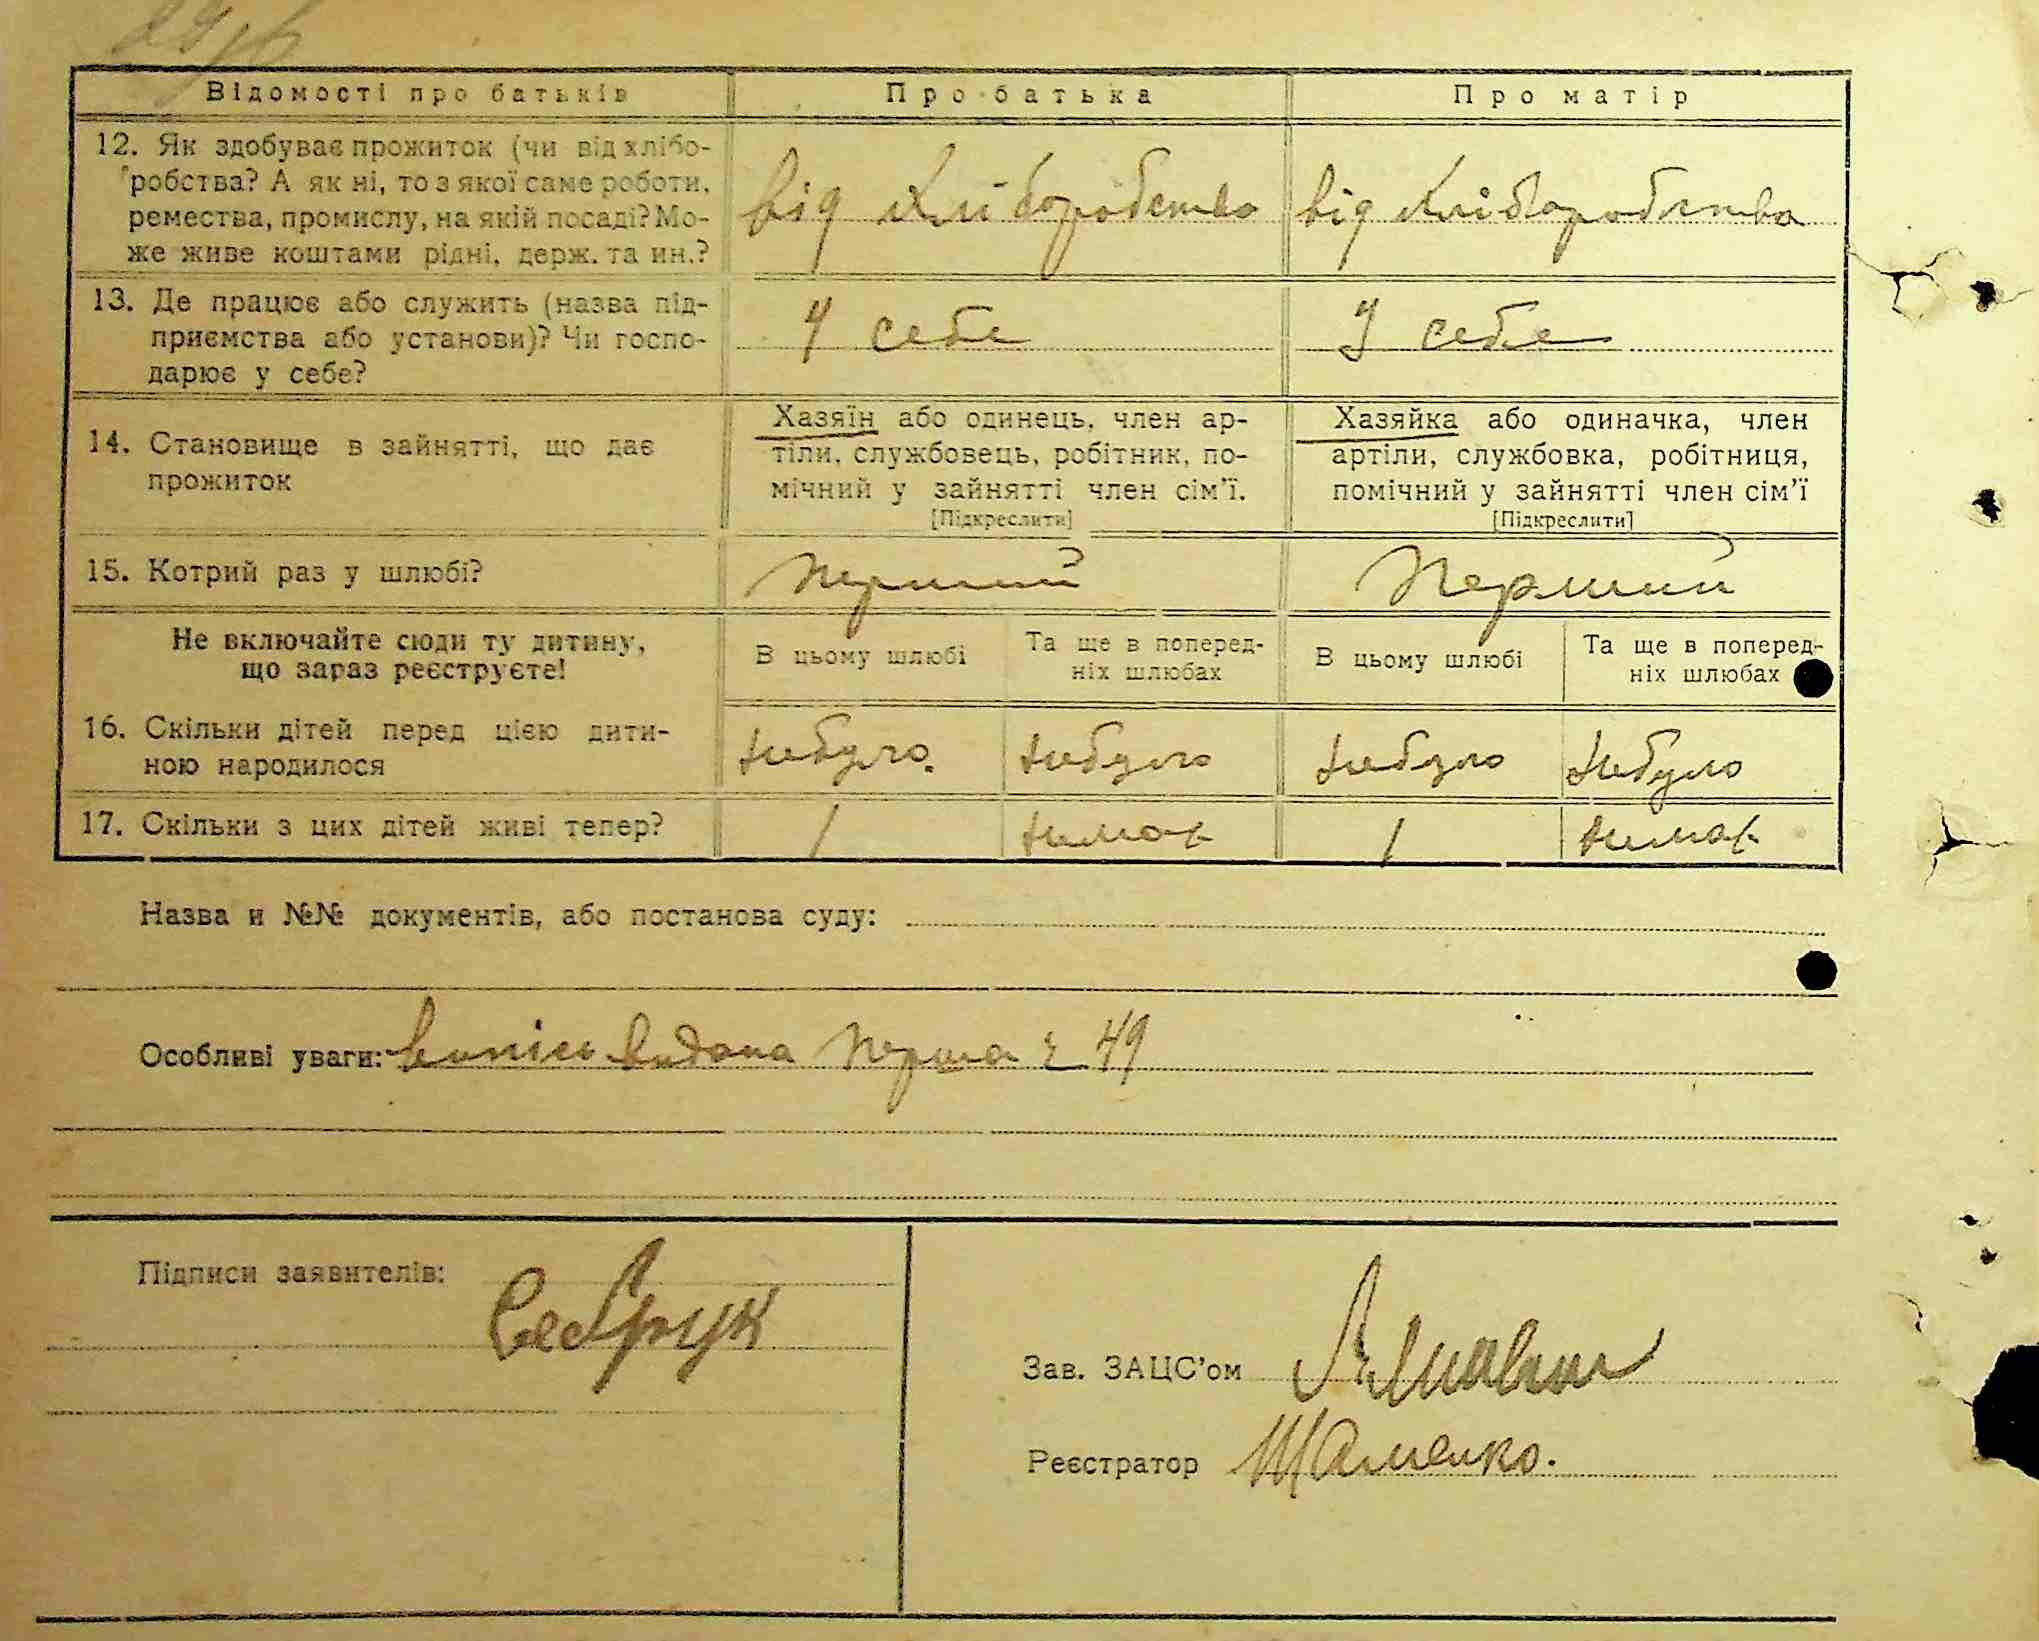 Відомості про батьків
Про батька
Про матір
12. Як здобуває прожиток (чи від хлібо-
робства? А як ні, то з якої саме роботи,
ремества, промислу, на якій посаді? Мо-
же живе коштами рідні, держ. та ин.?
від хліборобства
від хліборобства
13. Де працює або служить (назва під-
приємства або установи)? Чи госпо-
дарює у себе?
У себе
У себе
14. Становище в зайнятті, що дає
прожиток
Хазяїн або одинець, член ар-
тіли, службовець, робітник, по-
мічний у зайнятті член сім'ї.
[Підкреслити]
Хазяйка або одиначка, член
артіли, службовка, робітниця,
помічний у зайнятті член сім'ї
[Підкреслити]
15. Котрий раз у шлюбі?
перший
Перший
Не включайте сюди ту дитину,
що зараз реєструєте!
В цьому шлюбі
Та ще в поперед-
ніх шлюбах
В цьому шлюбі
Та ще в поперед-
ніх шлюбах
16. Скільки дітей перед цією дити-
ною народилося
небуло.
небуло
небуло
небуло
17. Скільки з цих дітей живі тепер?
1
немає
1
немає
Назва и №№ документів, або постанова суду:
Особливі уваги: випись видана перша 49
Підписи заявителів:
Зав. ЗАЦС'ом
Реєстратор